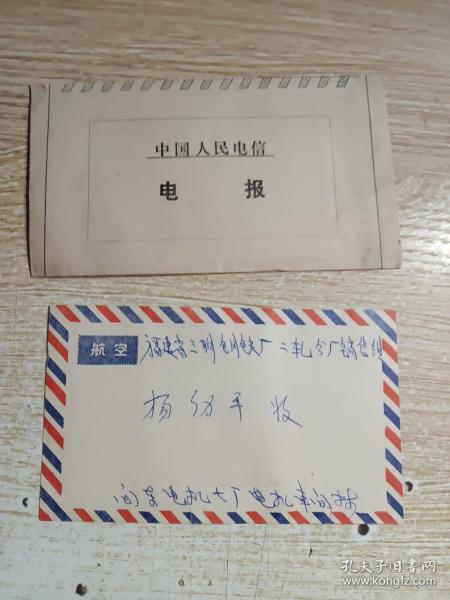 中国人民电信
电 报
航空
福建省三明钢铁厂二轧分厂销售组
杨 军 收
闽东电机厂电机车间林
孔夫子旧书网
www.kongfz.com